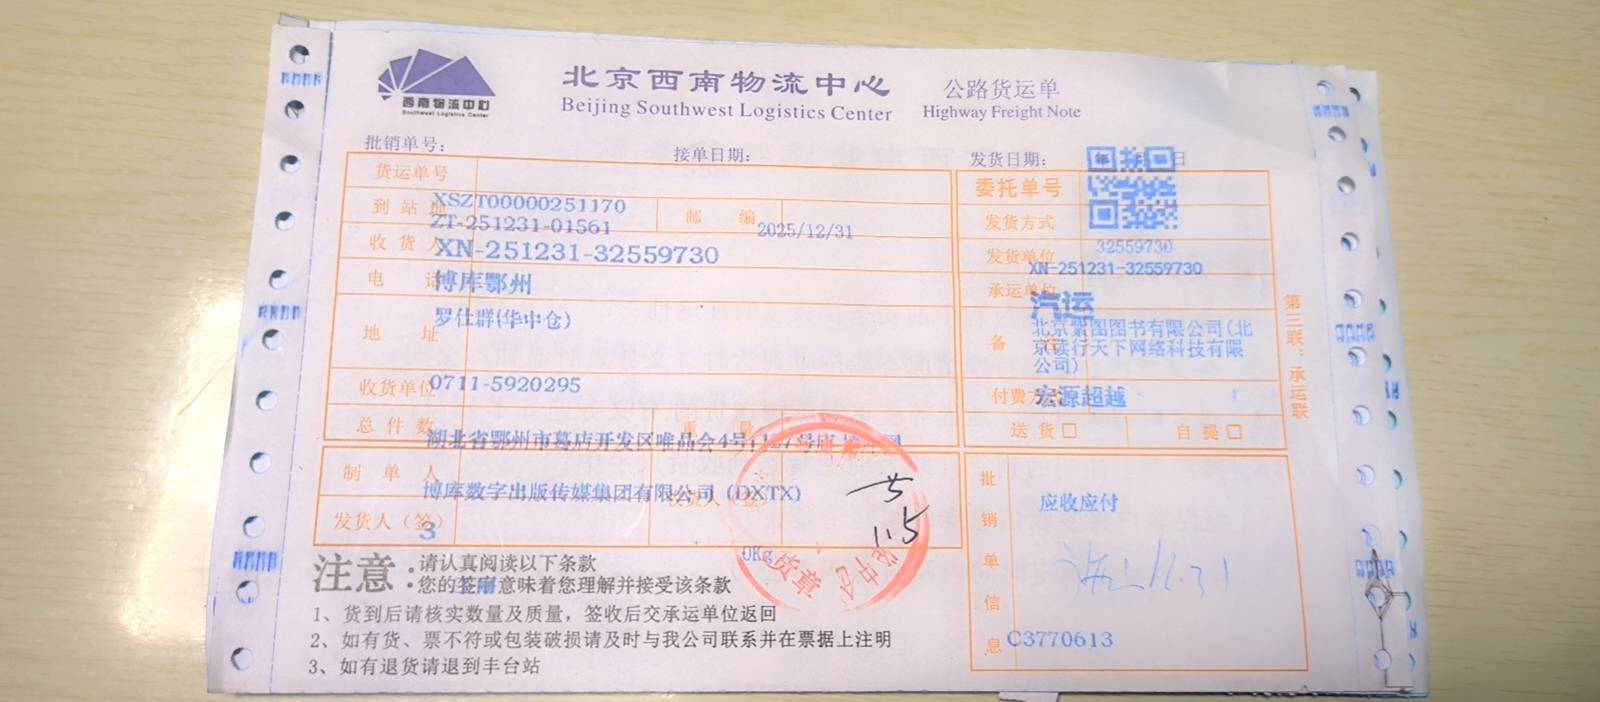 西南物流中心
Southwest Logistics Center
北京西南物流中心
Beijing Southwest Logistics Center
公路货运单
Highway Freight Note
批销单号：
接单日期：
发货日期： 年 日
货运单号
委托单号
XSZT00000251170
到站地
ZT-251231-01561
邮 编
2025/12/31
发货方式
收货人
XN-251231-32559730
发货单位
32559730
XN-251231-32559730
电 话
博库鄂州
承运单位
汽运
地 址
罗仕群(华中仓)
备
北京紫图图书有限公司(北
京读行天下网络科技有限
公司)
收货单位
0711-5920295
付费方
宏源超越
总件数
重 量
送货□
自提□
湖北省鄂州市葛店开发区唯品会4号
制单人
博库数字出版传媒集团有限公司 (DXTX)
发货人（签）
收货人（签）
3
0Kg
货章
中心
1.5
批销单信息
应收应付
C3770613
第三联：承运联
注意：
请认真阅读以下条款
您的签 意味着您理解并接受该条款
1、货到后请核实数量及质量，签收后交承运单位返回
2、如有货、票不符或包装破损请及时与我公司联系并在票据上注明
3、如有退货请退到丰台站